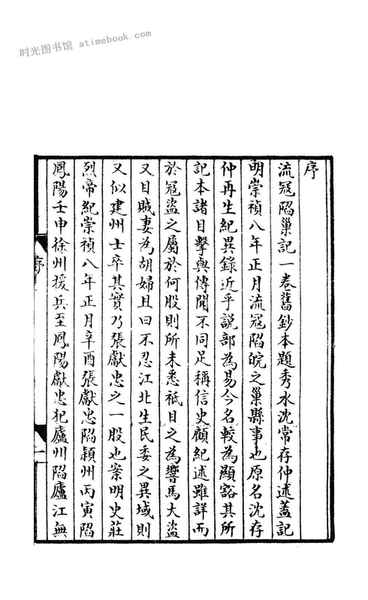 时光图书馆 atimebook.com
序
流寇陷巢記一卷舊鈔本題秀水沈常存仲述蓋記
明崇禎八年正月流寇陷皖之巢縣事也原名沈存
仲再生紀異錄近乎說部為易今名較為顯豁其所
記本諸目擊與傳聞不同足稱信史顧紀述雖詳而
於寇盜之屬於何股則所未悉祇目之為響馬大盜
又目賊妻為胡婦且曰不忍江北生民委之異域則
又似建州士卒其實乃張獻忠之一股也案明史莊
烈帝紀崇禎八年正月辛酉張獻忠陷潁州丙寅陷
鳳陽壬申徐州援兵至鳳陽獻忠犯廬州陷廬江無
序
一